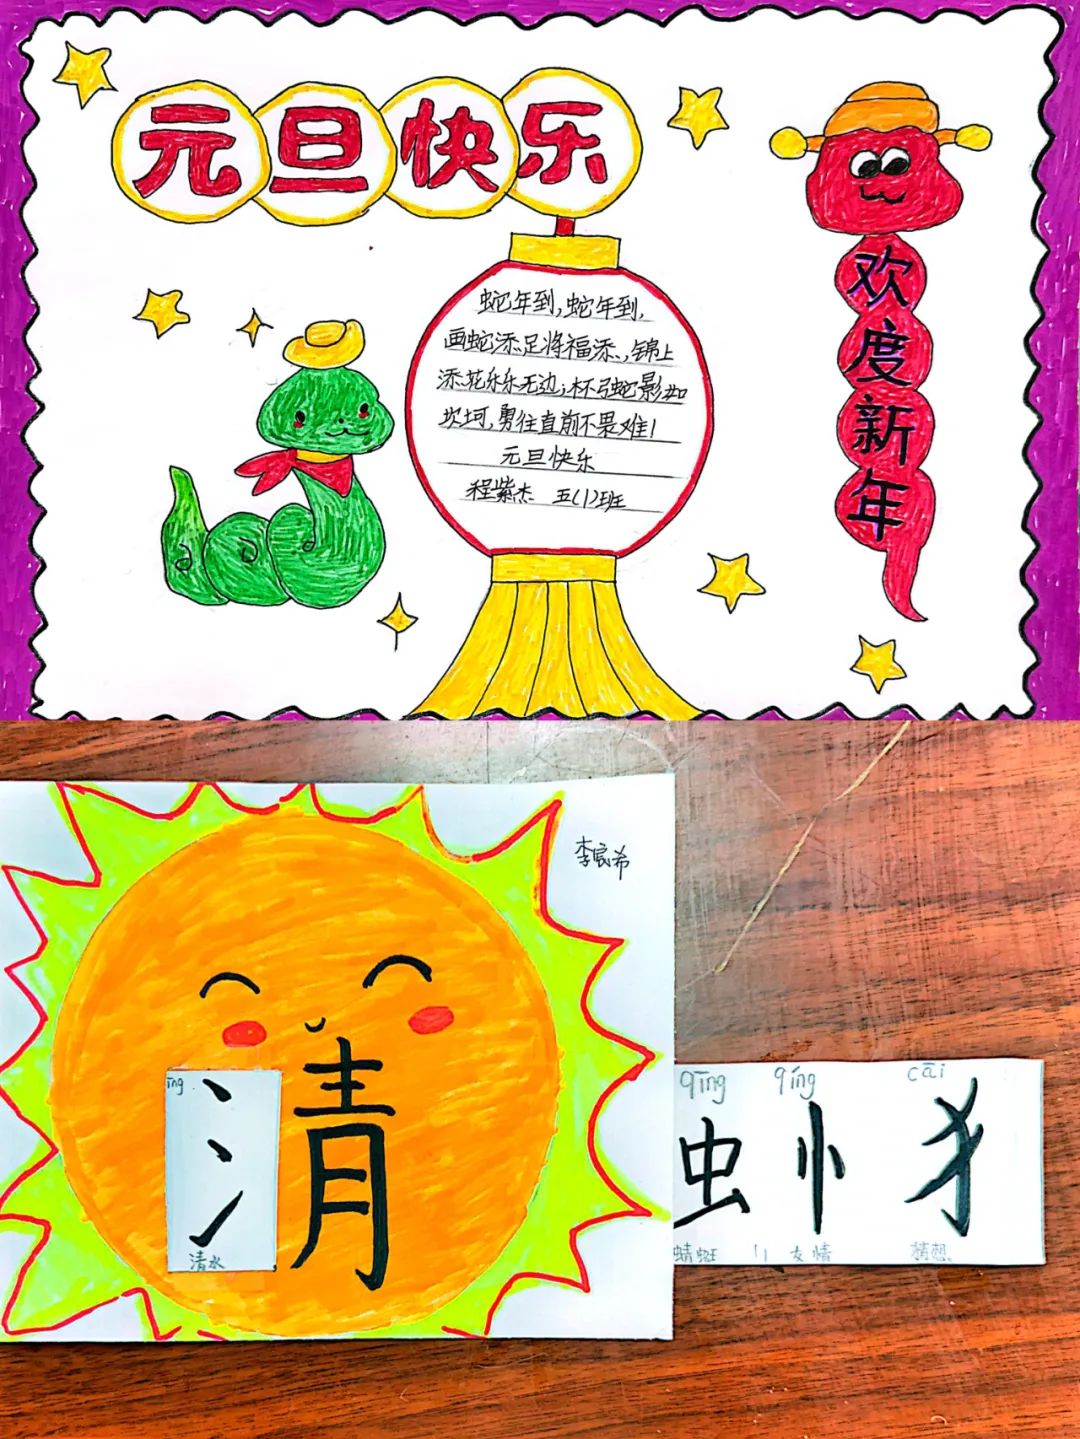 元旦快乐
欢度新年
蛇年到,蛇年到,
画蛇添足将福添,锦上
添花乐乐无边;杯弓蛇影如
坎坷,勇往直前不畏难!
元旦快乐
程紫杰 五(1)班
李宸希
īng
氵青
清水
qīng qíng cāi
虫 忄 犭
蜻蜓 友情 猜想